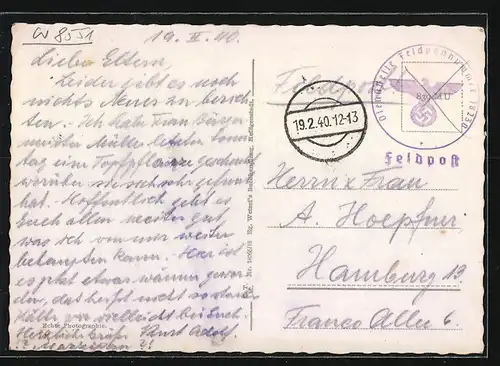 W 8051
19. II. 40.
Liebe Eltern,
Leider gibt es noch
nichts Neues zu berich-
ten. Ich habe Frau Bürger-
meister Müller letzten Sonn-
tag eine Topfpflanze geschenkt
worüber sie sich sehr gefreut
hat. Hoffentlich geht es
Euch allen weiter gut,
was ich von mir weiter
behaupten kann. Hier ist
es jetzt etwas wärmer gewor-
den, das heißt nicht so starke
Kälte wie vielleicht bei Euch.
Herzliche Grüße Kurt Adolf.
Echte Photographie.
Feldpost
19.2.40.12-13
Dienststelle Feldpostnummer 18230
Feldpost
Herrn u. Frau
A. Hoepfner,
Hamburg 13
Franco Allee 6.